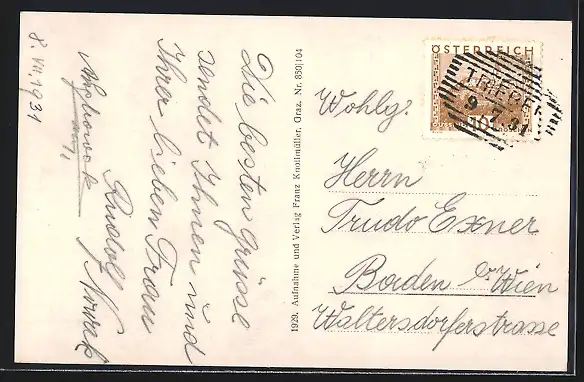 8. VII. 1931
Die besten Grüsse
sendet Ihnen und
Ihrer lieben Frau
Rudolf Nowak
1929. Aufnahme und Verlag Franz Knollmüller, Graz. Nr. 850|104
ÖSTERREICH
TRIEBEN
9. 7. 3
10
GROSCHEN
Wohlg.
Herrn
Trudo Exner
Baden b/Wien
Waltersdorferstrasse